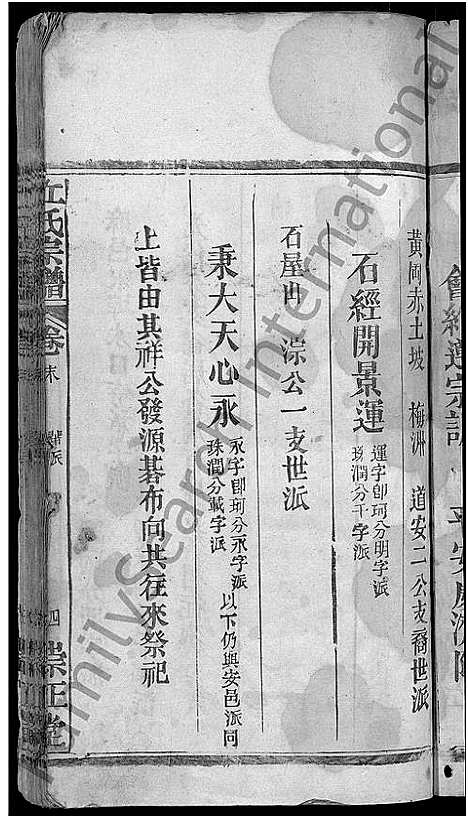 黃岡赤土坡 梅洲 道安二公支裔世派
石經開景運 運字卽珂分明字派
珠潤分干字派
石屋凹 淙公一支世派
秉大天心永 永字卽珂分永字派 以下仍與安邑派同
珠潤分載字派
上皆由其祥公發源碁布向共往來祭祀
丘氏宗譜 卷末 派 四 崇正堂
FamilySearch International